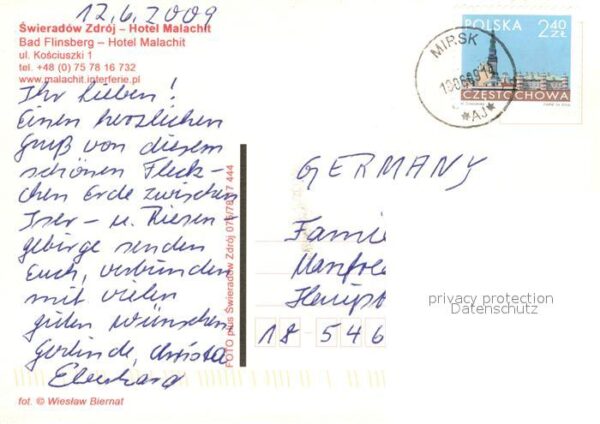 12.6.2009
Świeradów Zdrój – Hotel Malachit
Bad Flinsberg – Hotel Malachit
ul. Kościuszki 1
tel. +48 (0) 75 78 16 732
www.malachit.interferie.pl
Ihr Lieben!
Einen herzlichen
Gruß von diesem
schönen Fleck-
chen Erde zwischen
Iser- u. Riesen-
gebirge senden
Euch, verbunden
mit vielen
guten Wünschen
Gerlinde, Christa
Eberhard
fot. © Wiesław Biernat
FOTO plus Świeradów Zdrój 075/78 17 444
POLSKA 2,40
ZŁ
CZĘSTOCHOWA
MIRSK
*AJ*
GERMANY
Familie
Manfre
Haupt
18 546
privacy protection
Datenschutz